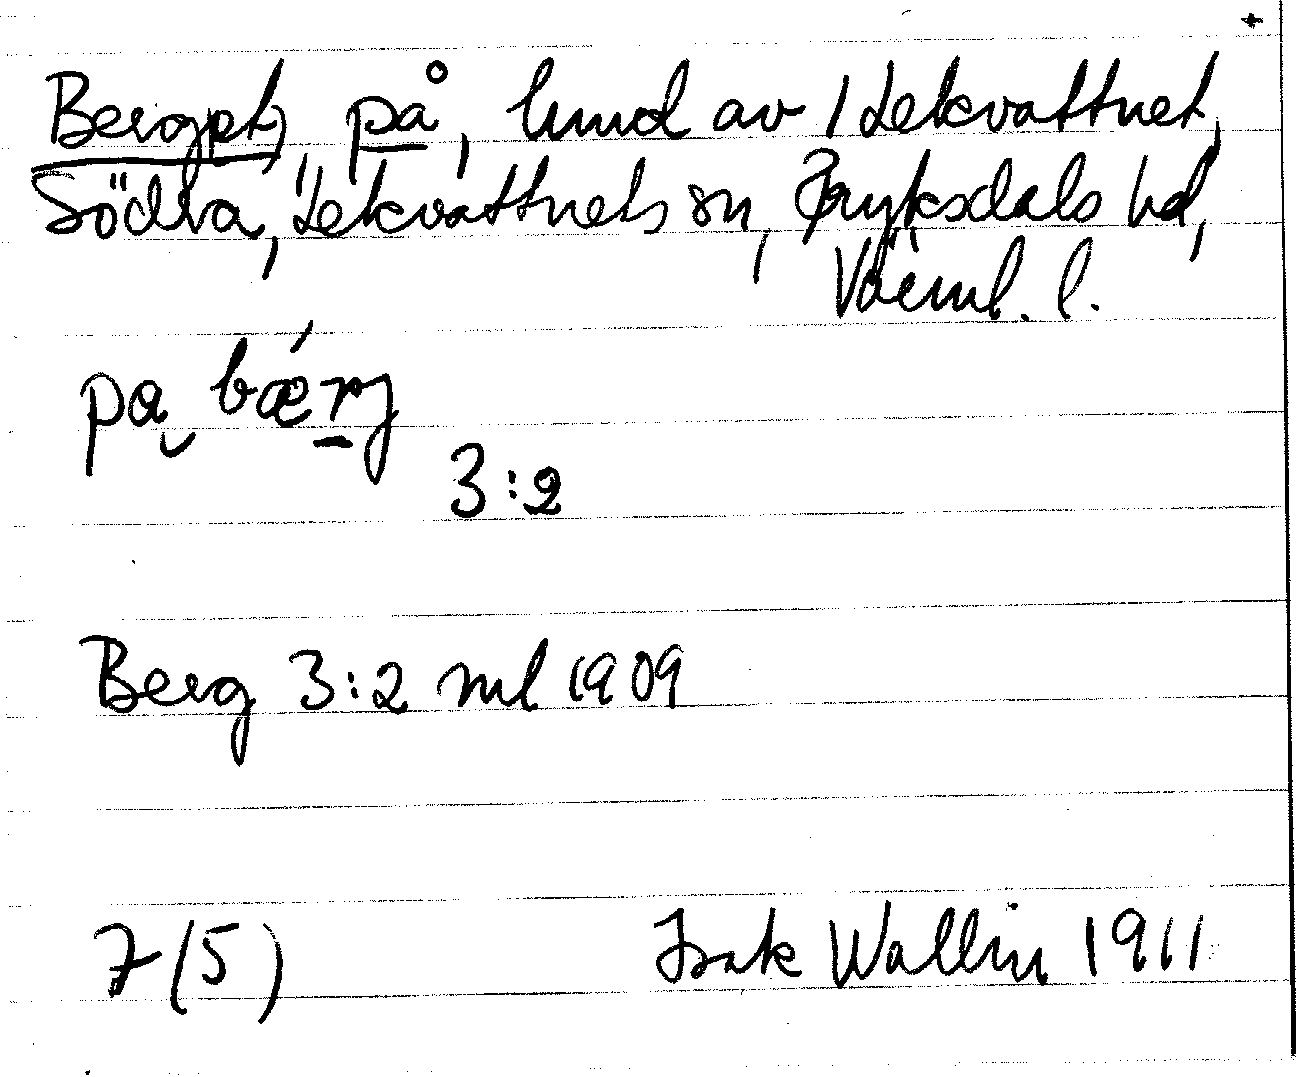 +
Berget, på, hmd av 1 Lekvattnet,
Södra, Lekvattnets sn, Fryksdals hd,
Värml. l.
pa bærj
3:2
Berg 3:2 ml 1909
7 (5) Isak Wallin 1911